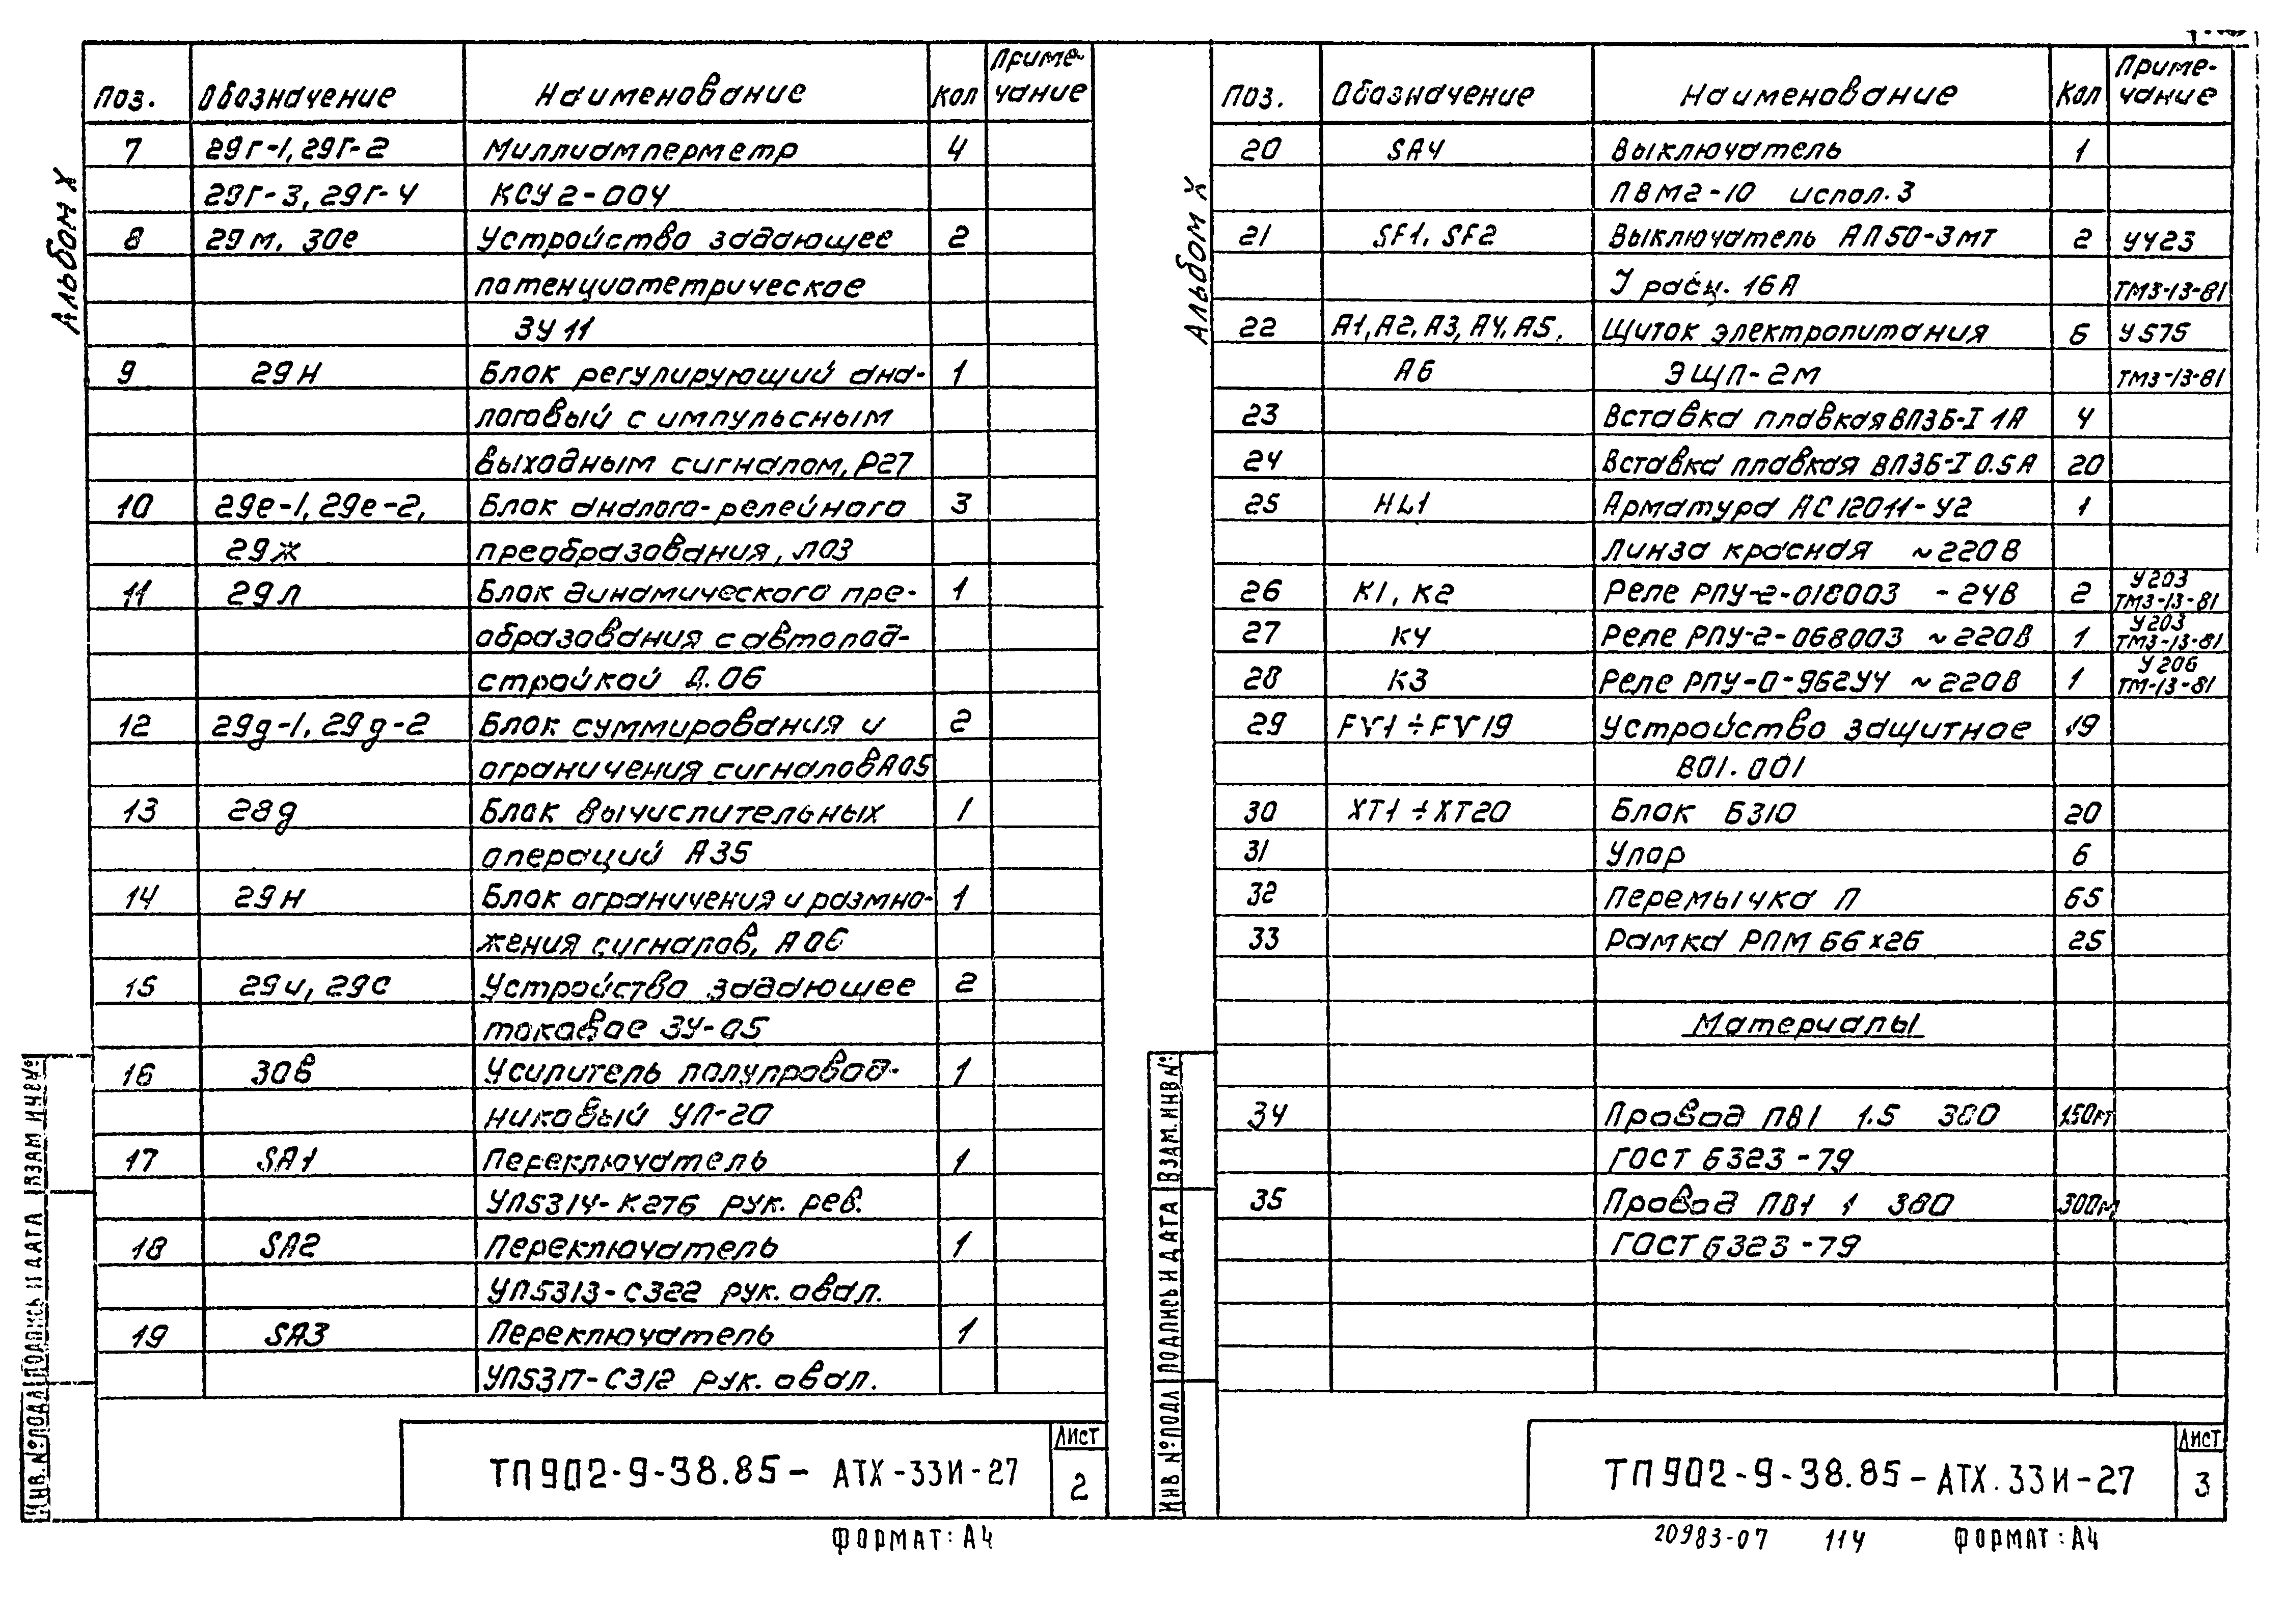 Альбом X
Поз. Обозначение Наименование Кол Приме-
чание
7 29г-1, 29г-2 Миллиамперметр 4
29г-3, 29г-4 КСУ2-004
8 29м, 30е Устройство задающее 2
потенциометрическое
ЗУ11
9 29н Блок регулирующий ана- 1
логовый с импульсным
выходным сигналом, Р27
10 29е-1, 29е-2, Блок аналого-релейного 3
29ж преобразования, Л03
11 29л Блок динамического пре- 1
образования с автопод-
стройкой Д.06
12 29д-1, 29д-2 Блок суммирования и 2
ограничения сигналов А05
13 28д Блок вычислительных 1
операций А35
14 29н Блок ограничения и размно- 1
жения сигналов, А06
15 29и, 29с Устройство задающее 2
токовое ЗУ-05
16 30в Усилитель полупровод- 1
никовый УП-20
17 SA1 Переключатель 1
УП5314-К276 рук. рев.
18 SA2 Переключатель 1
УП5313-С322 рук. овал.
19 SA3 Переключатель 1
УП5317-С312 рук. овал.
ИНВ.№ПОДЛ ПОДПИСЬ И ДАТА ВЗАМ ИНВ№
ТП902-9-38.85- АТХ-33И-27
Лист
2
ФОРМАТ: А4
Альбом X
Поз. Обозначение Наименование Кол Приме-
чание
20 SA4 Выключатель 1
ПВМ2-10 испол.3
21 SF1, SF2 Выключатель АП50-3МТ 2 У423
У расц. 16А ТМ3-13-81
22 А1, А2, А3, А4, А5, Щиток электропитания 6 У575
А6 ЭЩП-2М ТМ3-13-81
23 Вставка плавкая ВП3Б-I 1А 4
24 Вставка плавкая ВП3Б-I 0.5А 20
25 HL1 Арматура АС12011-У2 1
линза красная ~220В
26 К1, К2 Реле РПУ-2-018003 -24В 2 У203
ТМ3-13-81
27 К4 Реле РПУ-2-068003 ~220В 1 У203
ТМ3-13-81
28 К3 Реле РПУ-0-962У4 ~220В 1 У206
ТМ-13-81
29 FV1÷FV19 Устройство защитное 19
801.001
30 ХТ1÷ХТ20 Блок Б310 20
31 Упор 6
32 Перемычка П 65
33 Рамка РПМ 66х26 25
Материалы
34 Провод ПВ1 1.5 380 150м
ГОСТ 6323-79
35 Провод ПВ1 1 380 300м
ГОСТ 6323-79
ИНВ №ПОДЛ ПОДПИСЬ И ДАТА ВЗАМ.ИНВ№
ТП902-9-38.85-АТХ.33И-27
Лист
3
20983-07 114 ФОРМАТ: А4